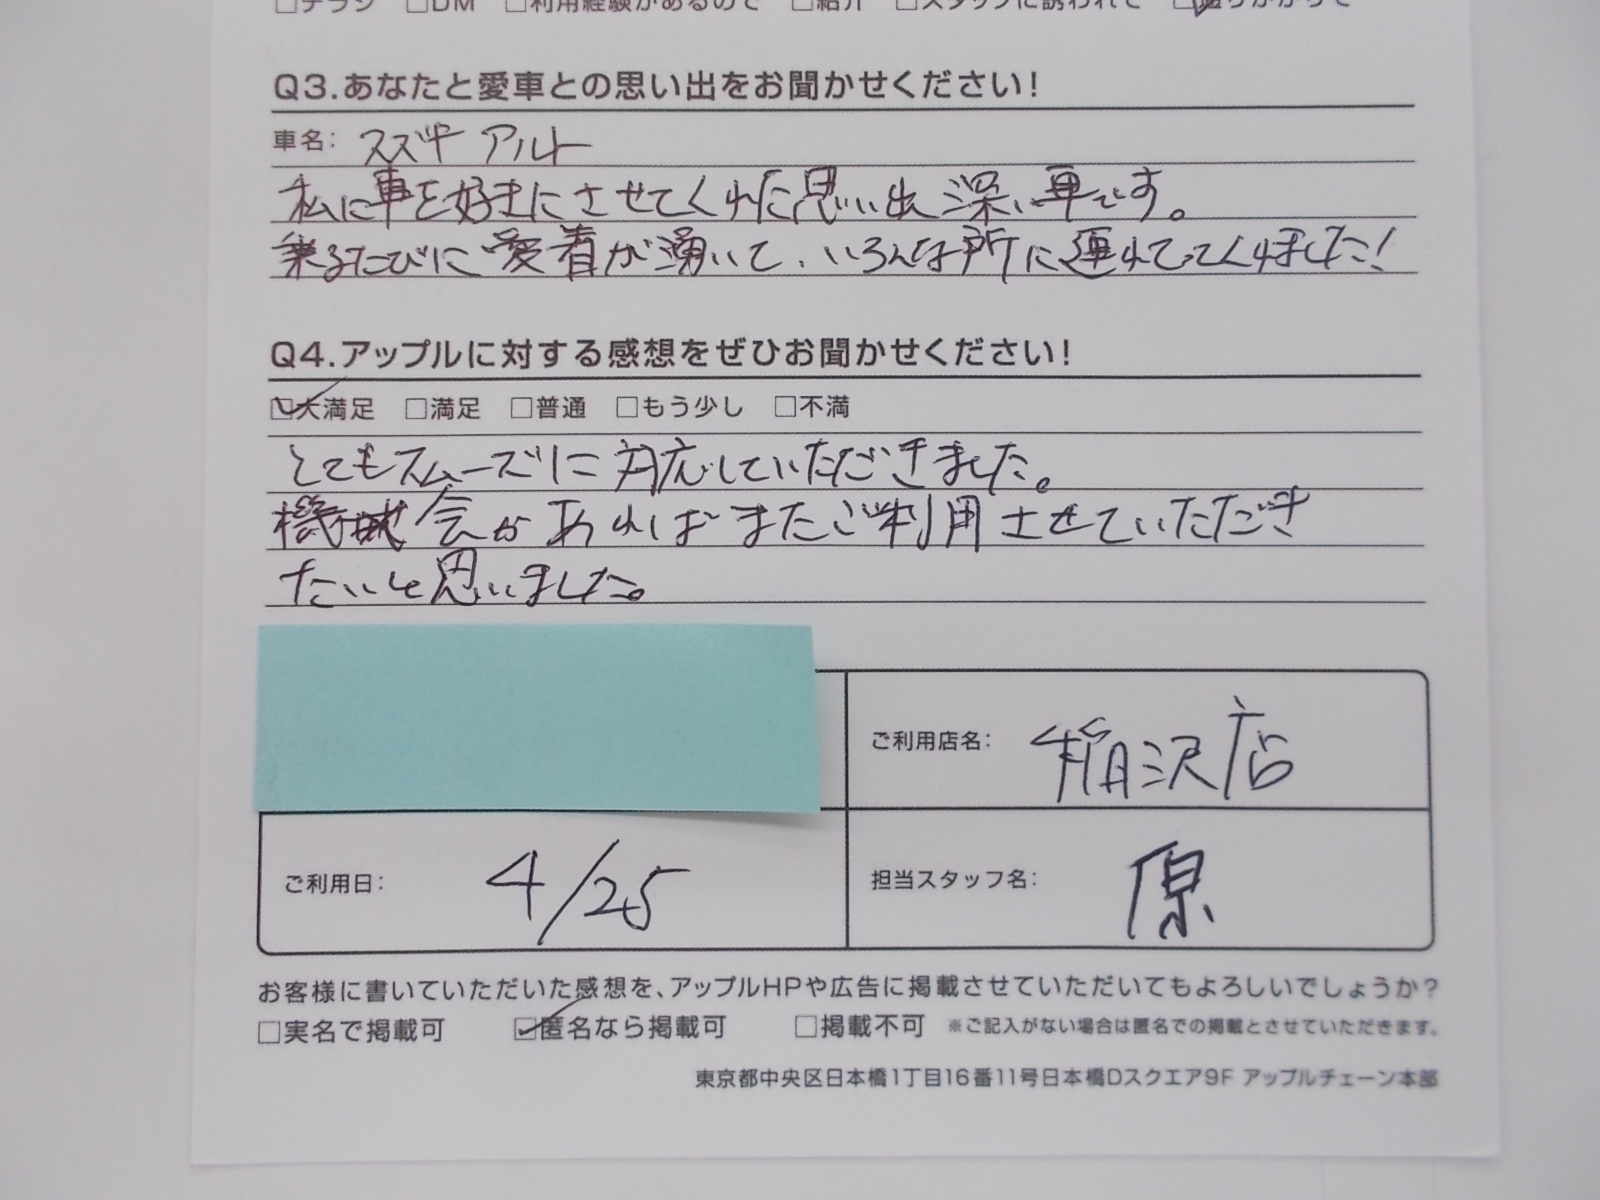 □チラシ □DM □利用経験があるので □紹介 □スタッフに誘われて ☑通りがかりで
Q3.あなたと愛車との思い出をお聞かせください!
車名: スズキ アルト
私に車を好きにさせてくれた思い出深い車です。
乗るたびに愛着が湧いて、いろんな所に連れてってくれました!
Q4.アップルに対する感想をぜひお聞かせください!
☑大満足 □満足 □普通 □もう少し □不満
とてもスムーズに対応していただきました。
機会があればまたご利用させていただき
たいと思いました。
ご利用店名: 稲沢店
ご利用日: 4/25
担当スタッフ名: 原
お客様に書いていただいた感想を、アップルHPや広告に掲載させていただいてもよろしいでしょうか?
□実名で掲載可 ☑匿名なら掲載可 □掲載不可 ※ご記入がない場合は匿名での掲載とさせていただきます。
東京都中央区日本橋1丁目16番11号日本橋Dスクエア9F アップルチェーン本部